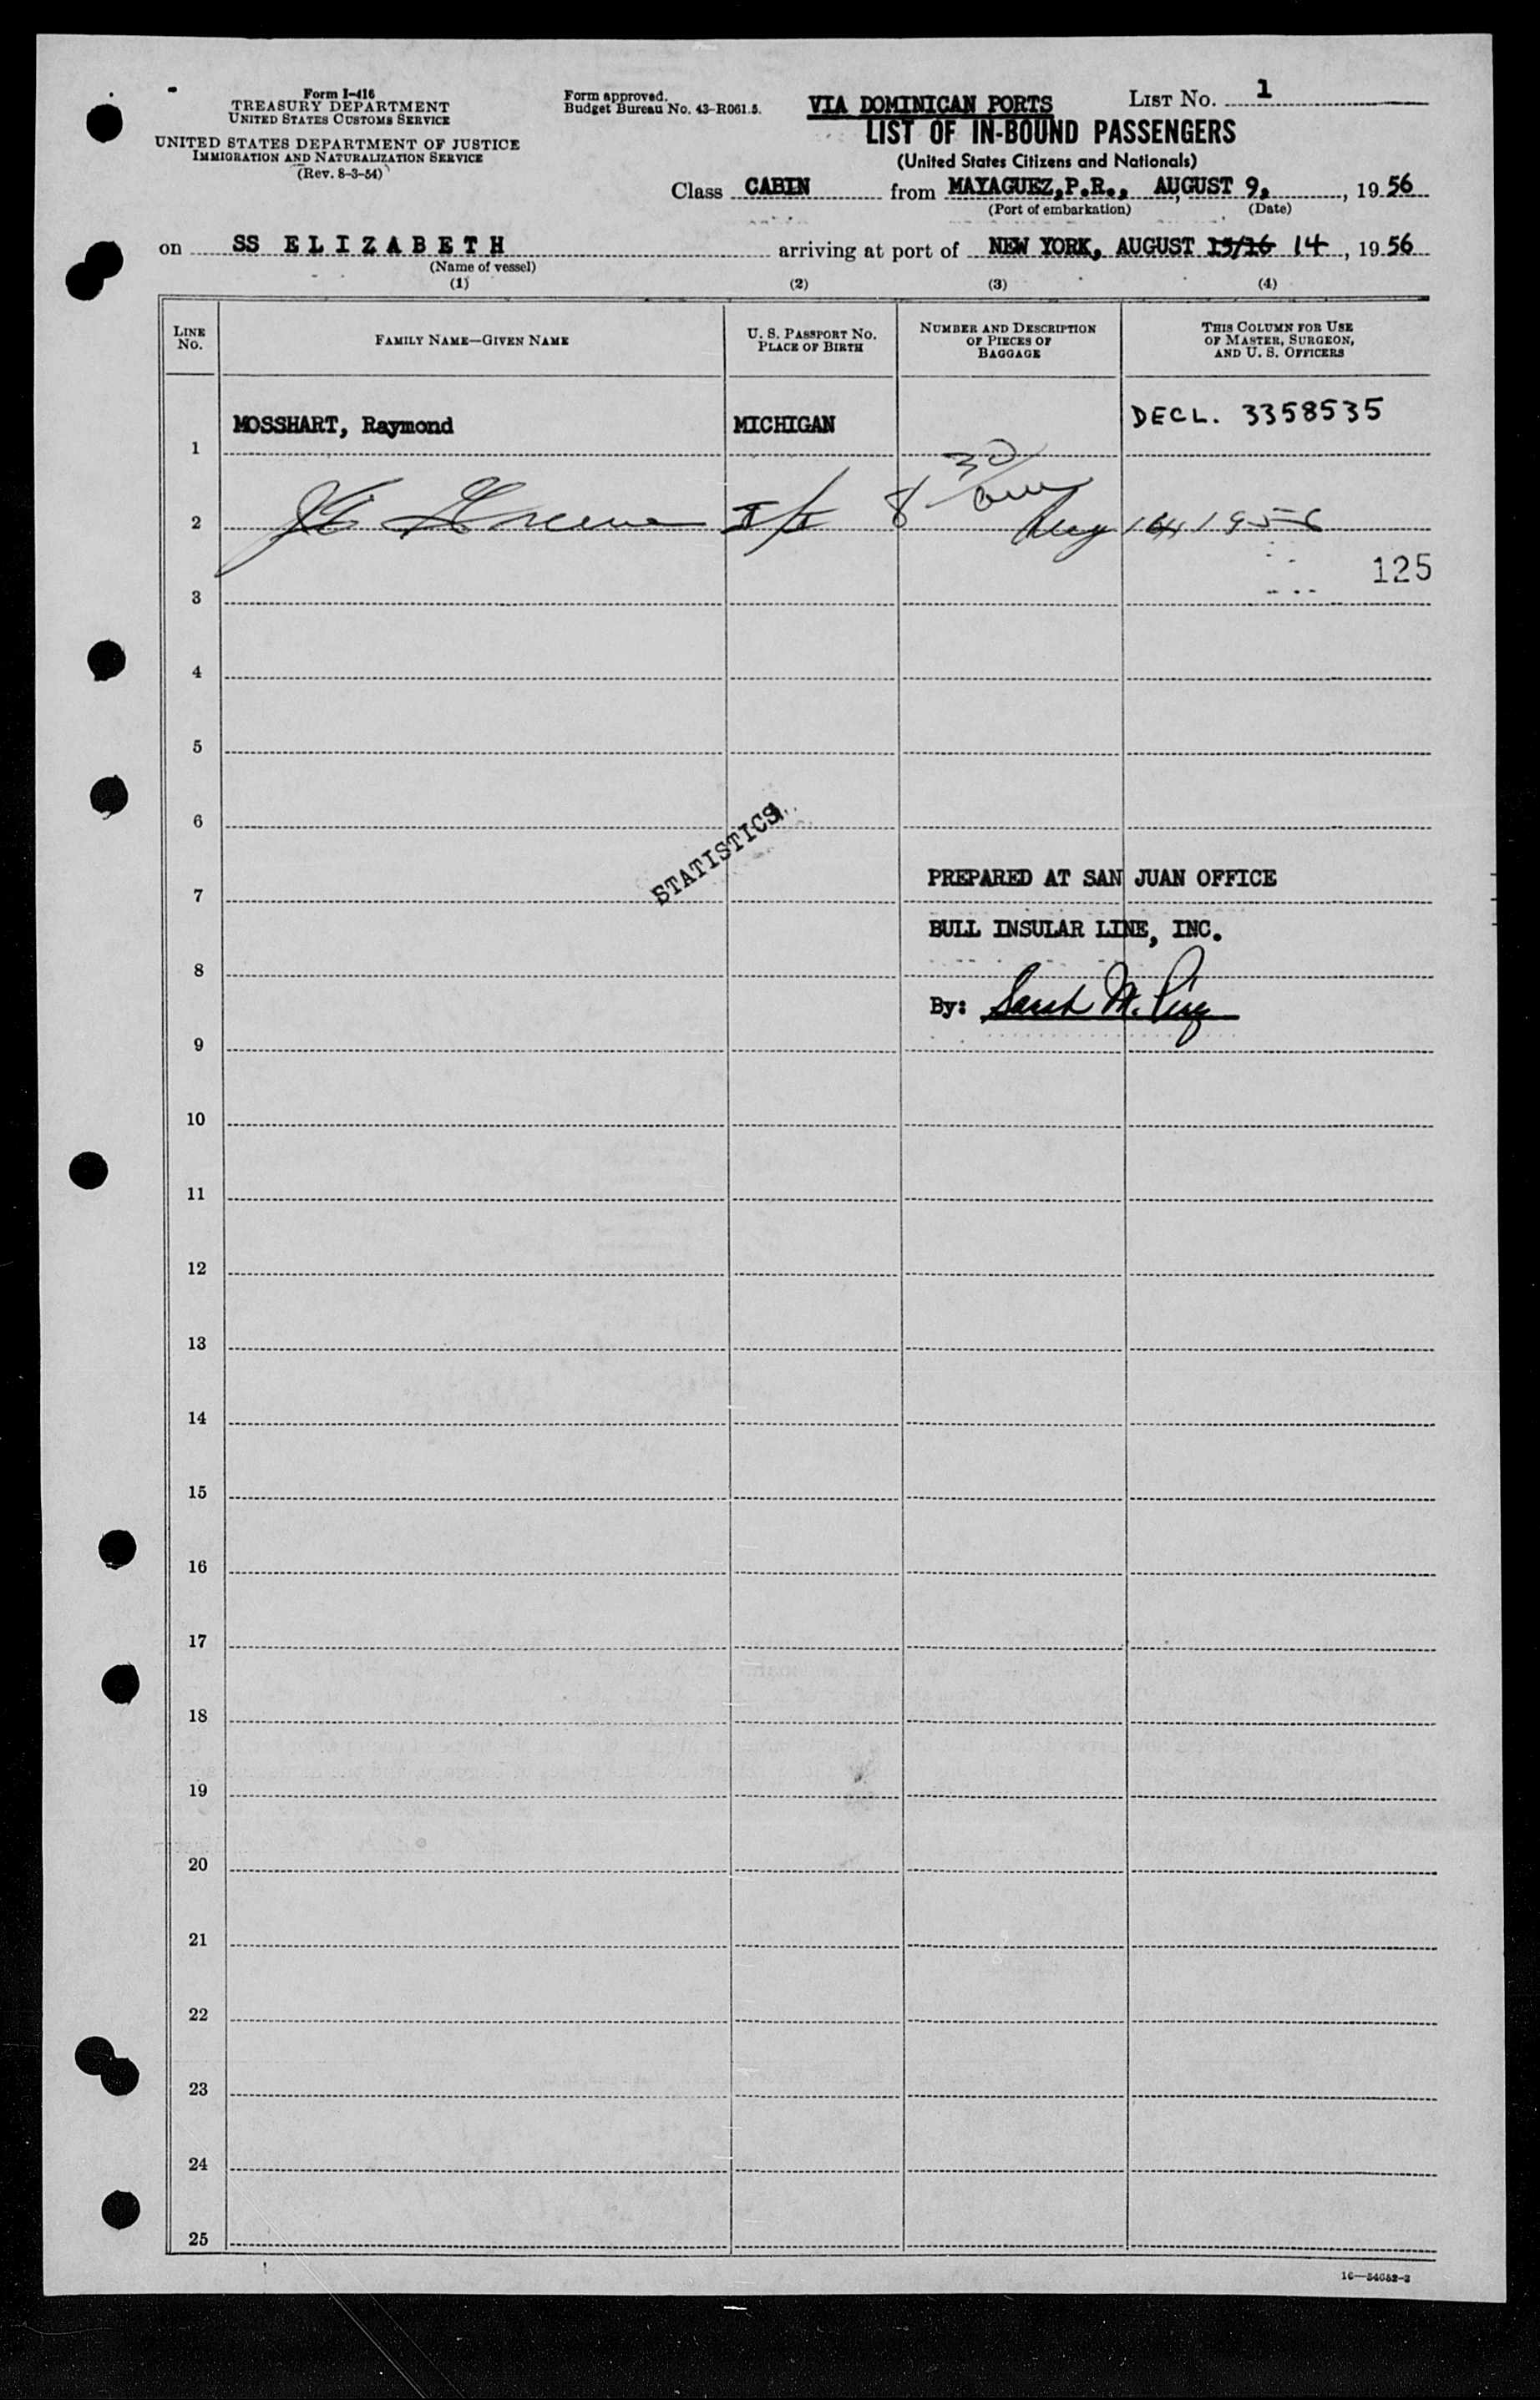 Form I-416
TREASURY DEPARTMENT
UNITED STATES CUSTOMS SERVICE
UNITED STATES DEPARTMENT OF JUSTICE
IMMIGRATION AND NATURALIZATION SERVICE
(Rev. 8-3-54)
Form approved.
Budget Bureau No. 43-R061.5.
VIA DOMINICAN PORTS
LIST NO. 1
LIST OF IN-BOUND PASSENGERS
(United States Citizens and Nationals)
Class CABIN from MAYAGUEZ,P.R., AUGUST 9, , 19 56
(Port of embarkation) (Date)
on SS ELIZABETH arriving at port of NEW YORK, AUGUST 15/16 14 , 19 56
(Name of vessel)
(1) (2) (3) (4)
LINE NO.
FAMILY NAME—GIVEN NAME
U. S. PASSPORT NO.
PLACE OF BIRTH
NUMBER AND DESCRIPTION
OF PIECES OF
BAGGAGE
THIS COLUMN FOR USE
OF MASTER, SURGEON,
AND U. S. OFFICERS
1 MOSSHART, Raymond MICHIGAN DECL. 3358535
2 Greene I/I 8 30 Aug 14 1956
125
3
4
5
6
STATISTICS
7 PREPARED AT SAN JUAN OFFICE
BULL INSULAR LINE, INC.
8
By: Sarah M.
9
10
11
12
13
14
15
16
17
18
19
20
21
22
23
24
25